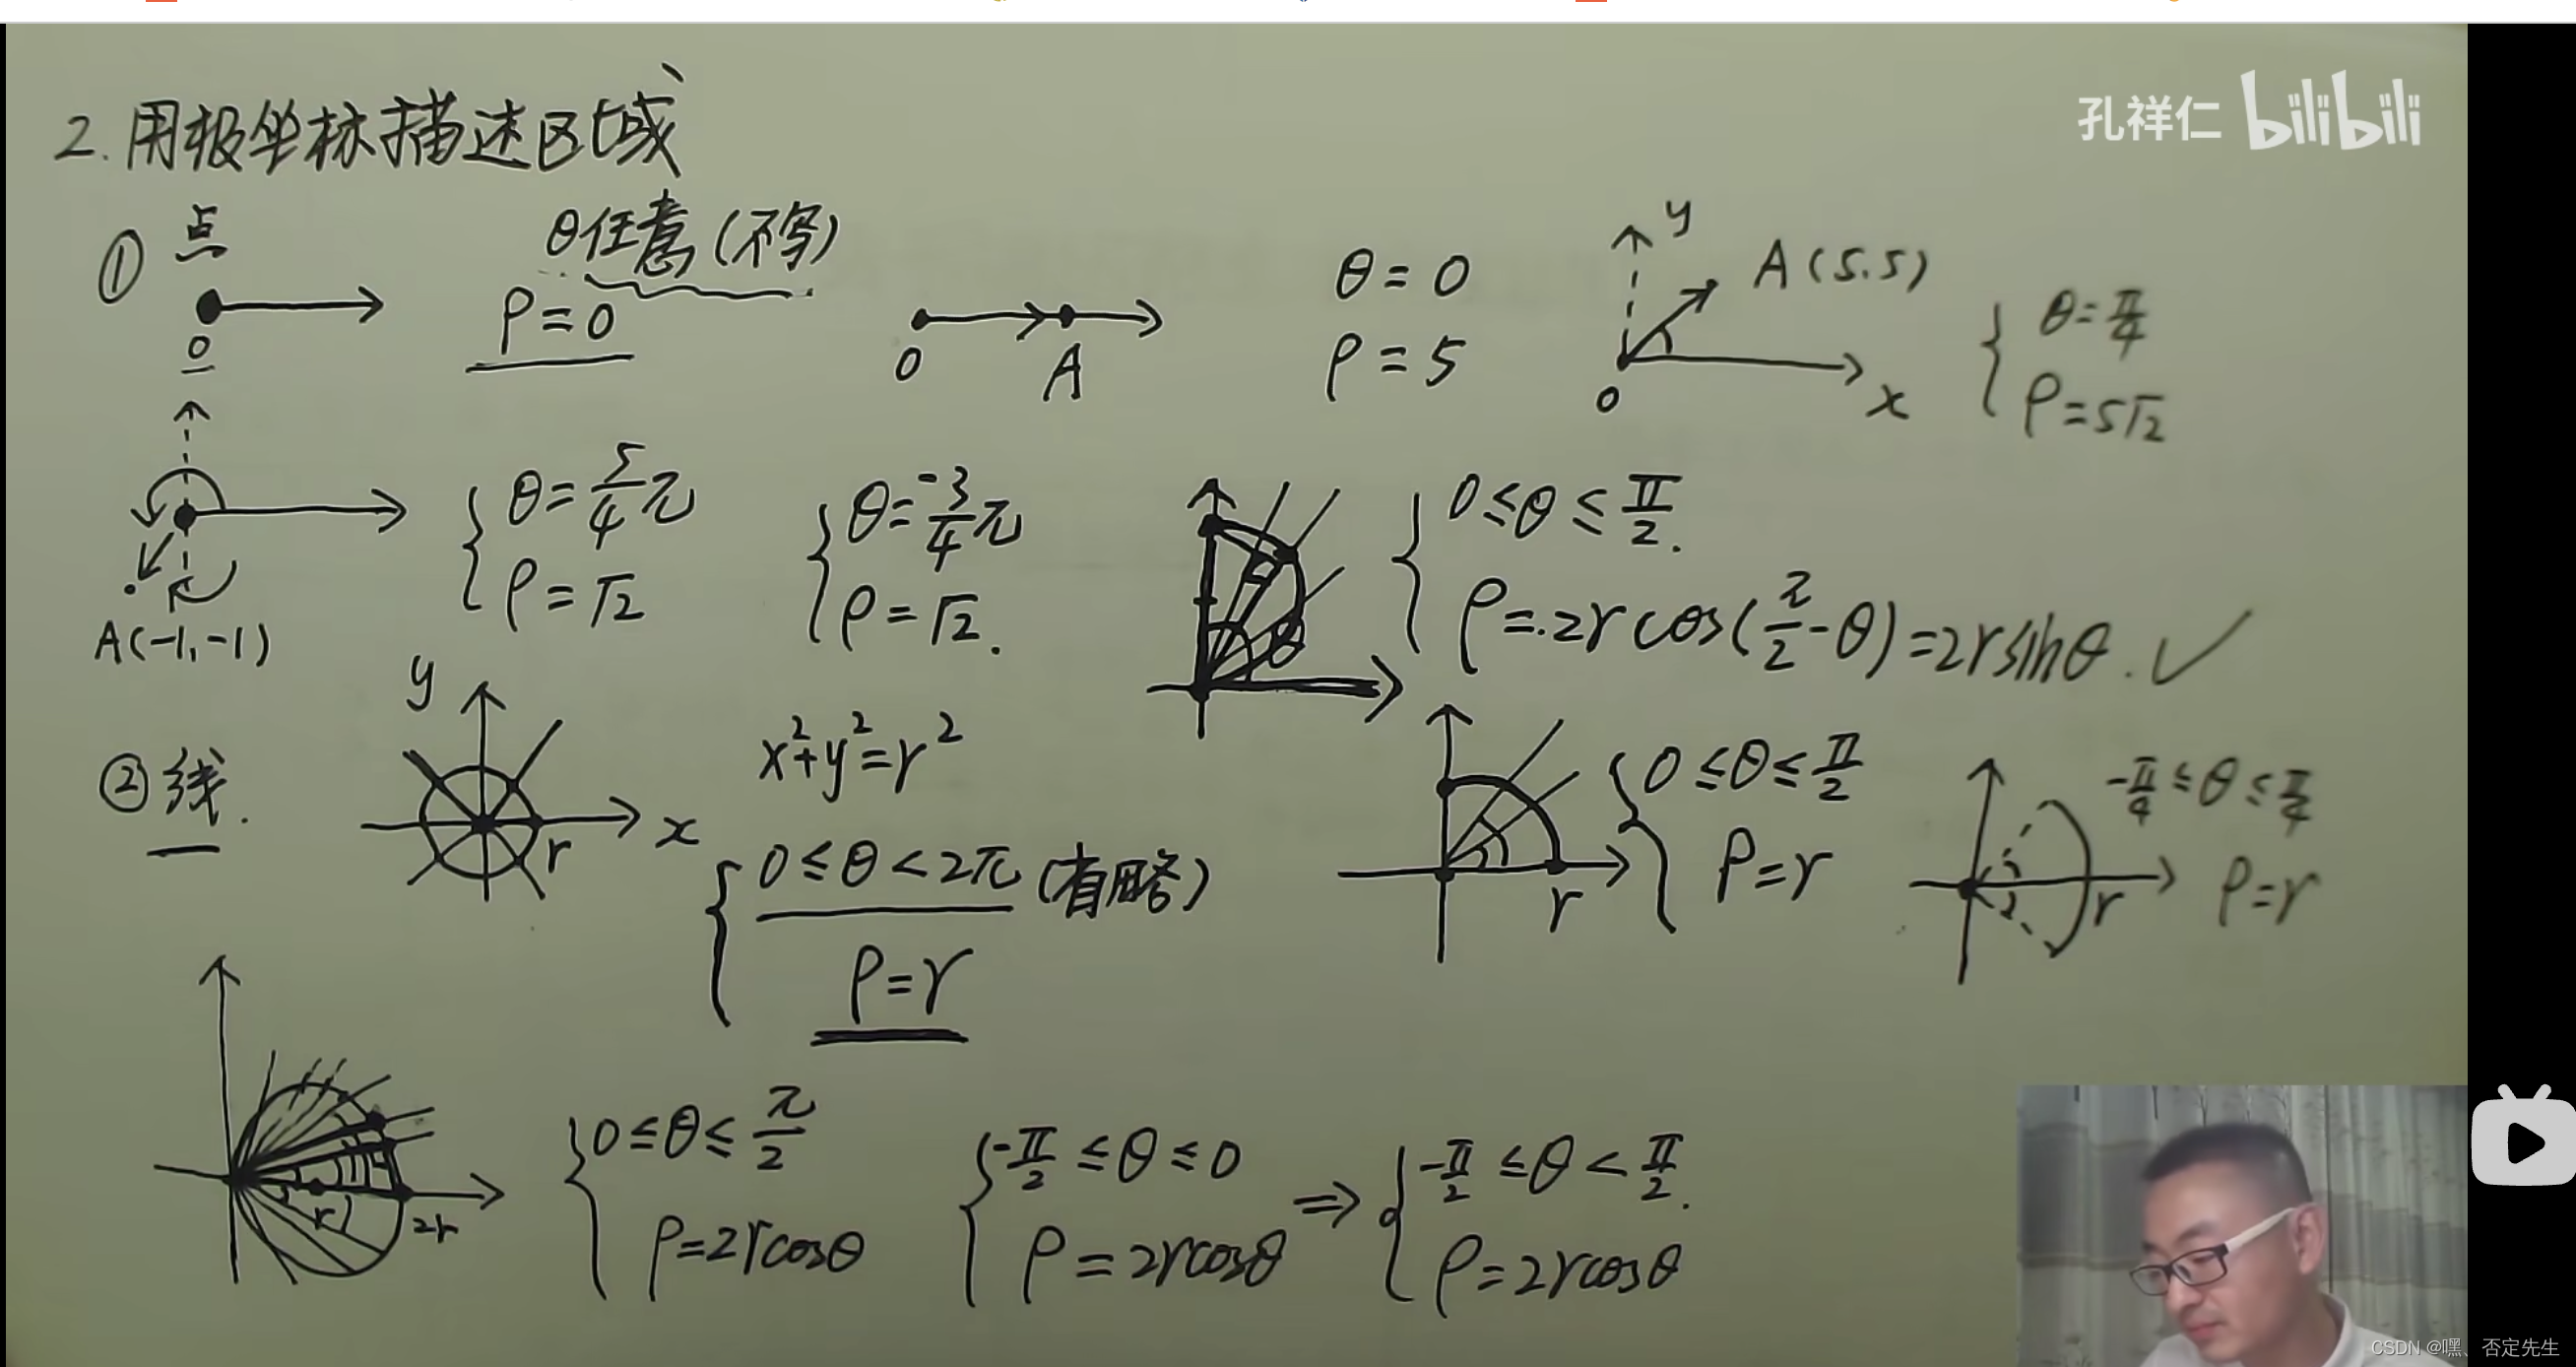 孔祥仁 bilibili
2.用极坐标描述区域
① 点
O
θ任意(不写)
ρ=0
O A
θ=0
ρ=5
y
A(5.5)
O x
θ=π/4
ρ=5√2
A(-1,-1)
θ=5/4π
ρ=√2
θ=-3/4π
ρ=√2.
0≤θ≤π/2.
ρ=.2rcos(π/2-θ)=2rsinθ.✓
②线.
y
r x
x²+y²=r²
0≤θ<2π(省略)
ρ=r
r
0≤θ≤π/2
ρ=r
r
-π/4≤θ≤π/4
ρ=r
r 2r
0≤θ≤π/2
ρ=2rcosθ
-π/2≤θ≤0
ρ=2rcosθ
⇒
-π/2≤θ<π/2.
ρ=2rcosθ
CSDN @嘿、否定先生